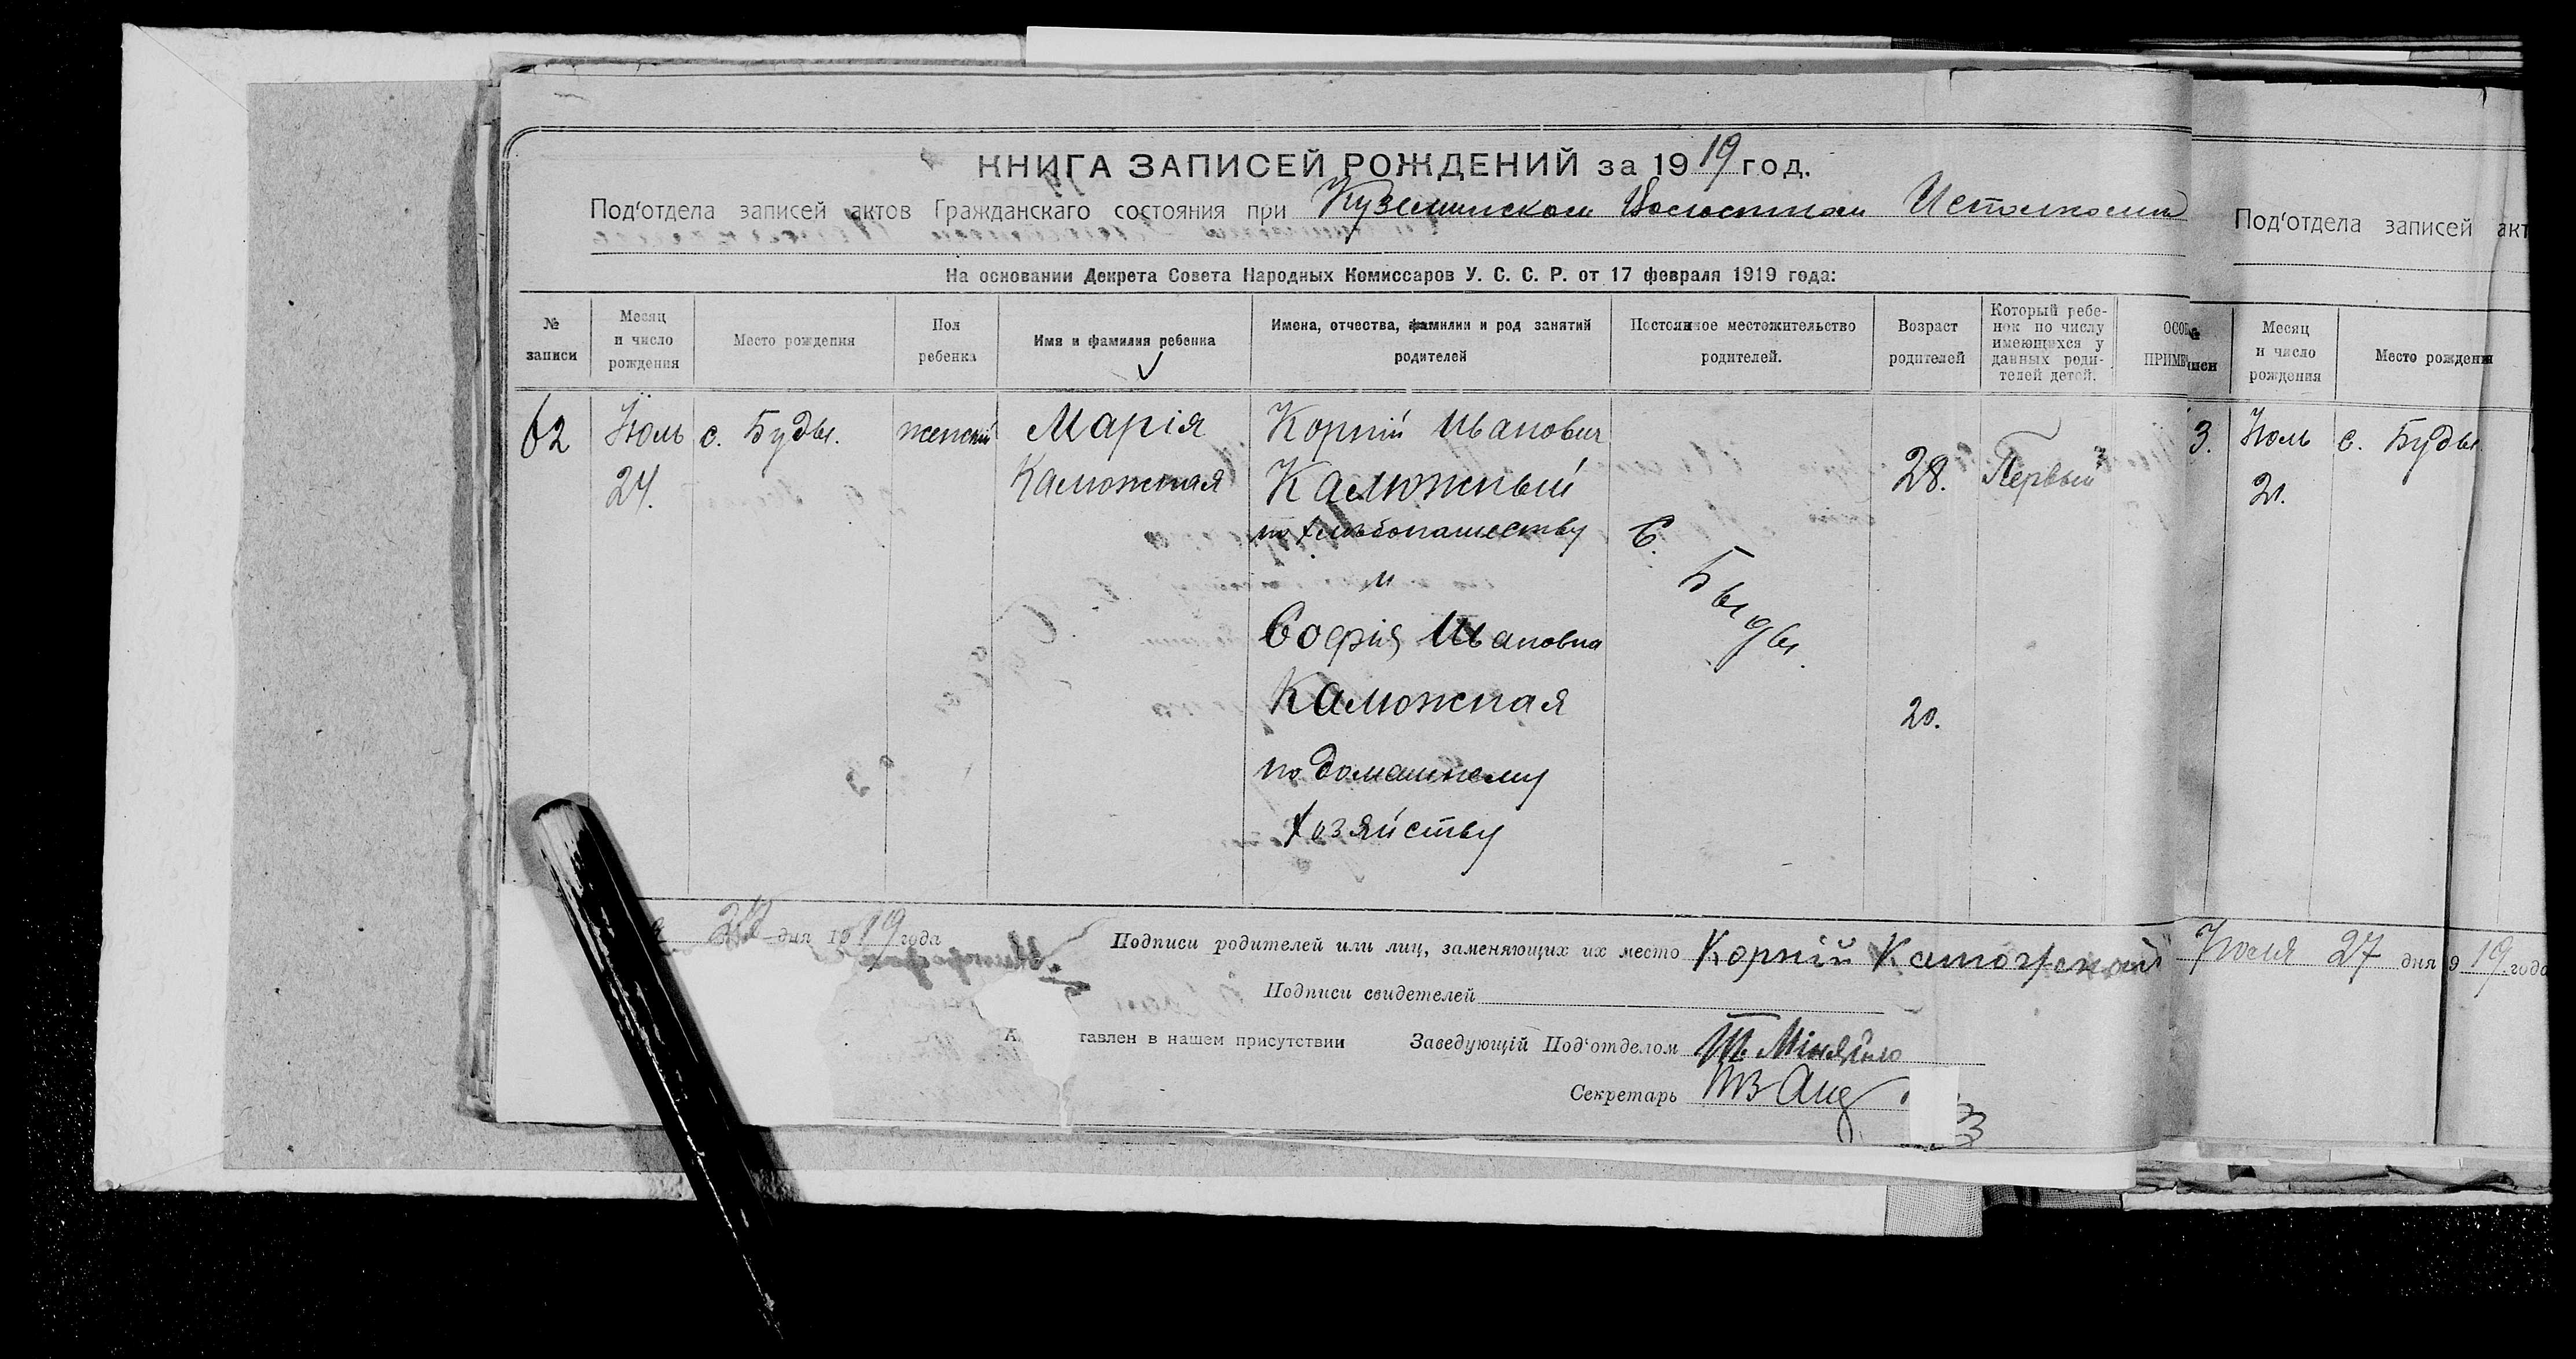 КНИГА ЗАПИСЕЙ РОЖДЕНИЙ за 1919 год.
Под'отдела записей актов Гражданскаго состояния при Куземинском Волостном Исполкоми
На основании Декрета Совета Народных Комиссаров У. С. С. Р. от 17 февраля 1919 года:
№ записи
Месяц и число рождения
Место рождения
Пол ребенка
Имя и фамилия ребенка
Имена, отчества, фамилии и род занятий родителей
Постоянное местожительство родителей.
Возраст родителей
Который ребенок по числу имеющихся у данных родителей детей.
ОСОБ
ПРИМЕ
62
Июль
24.
с. Буды.
женский
Марія
Калюжная
Корній Иванович
Калюжный
по хлебопашеству
и
Софія Ивановна
Калюжная
по домашнему
хозяйству
С.
Буды.
28.
20.
Первый
дня 1919 года
Подписи родителей или лиц, заменяющих их место Корній
Подписи свидетелей
тавлен в нашем присутствии
Заведующій Под'отделом Міняйло
Секретарь
Под'отдела записей акт
№
Месяц и число рождения
Место рождения
3.
Июль
21.
с. Буды
Июля 27 дня 919 года